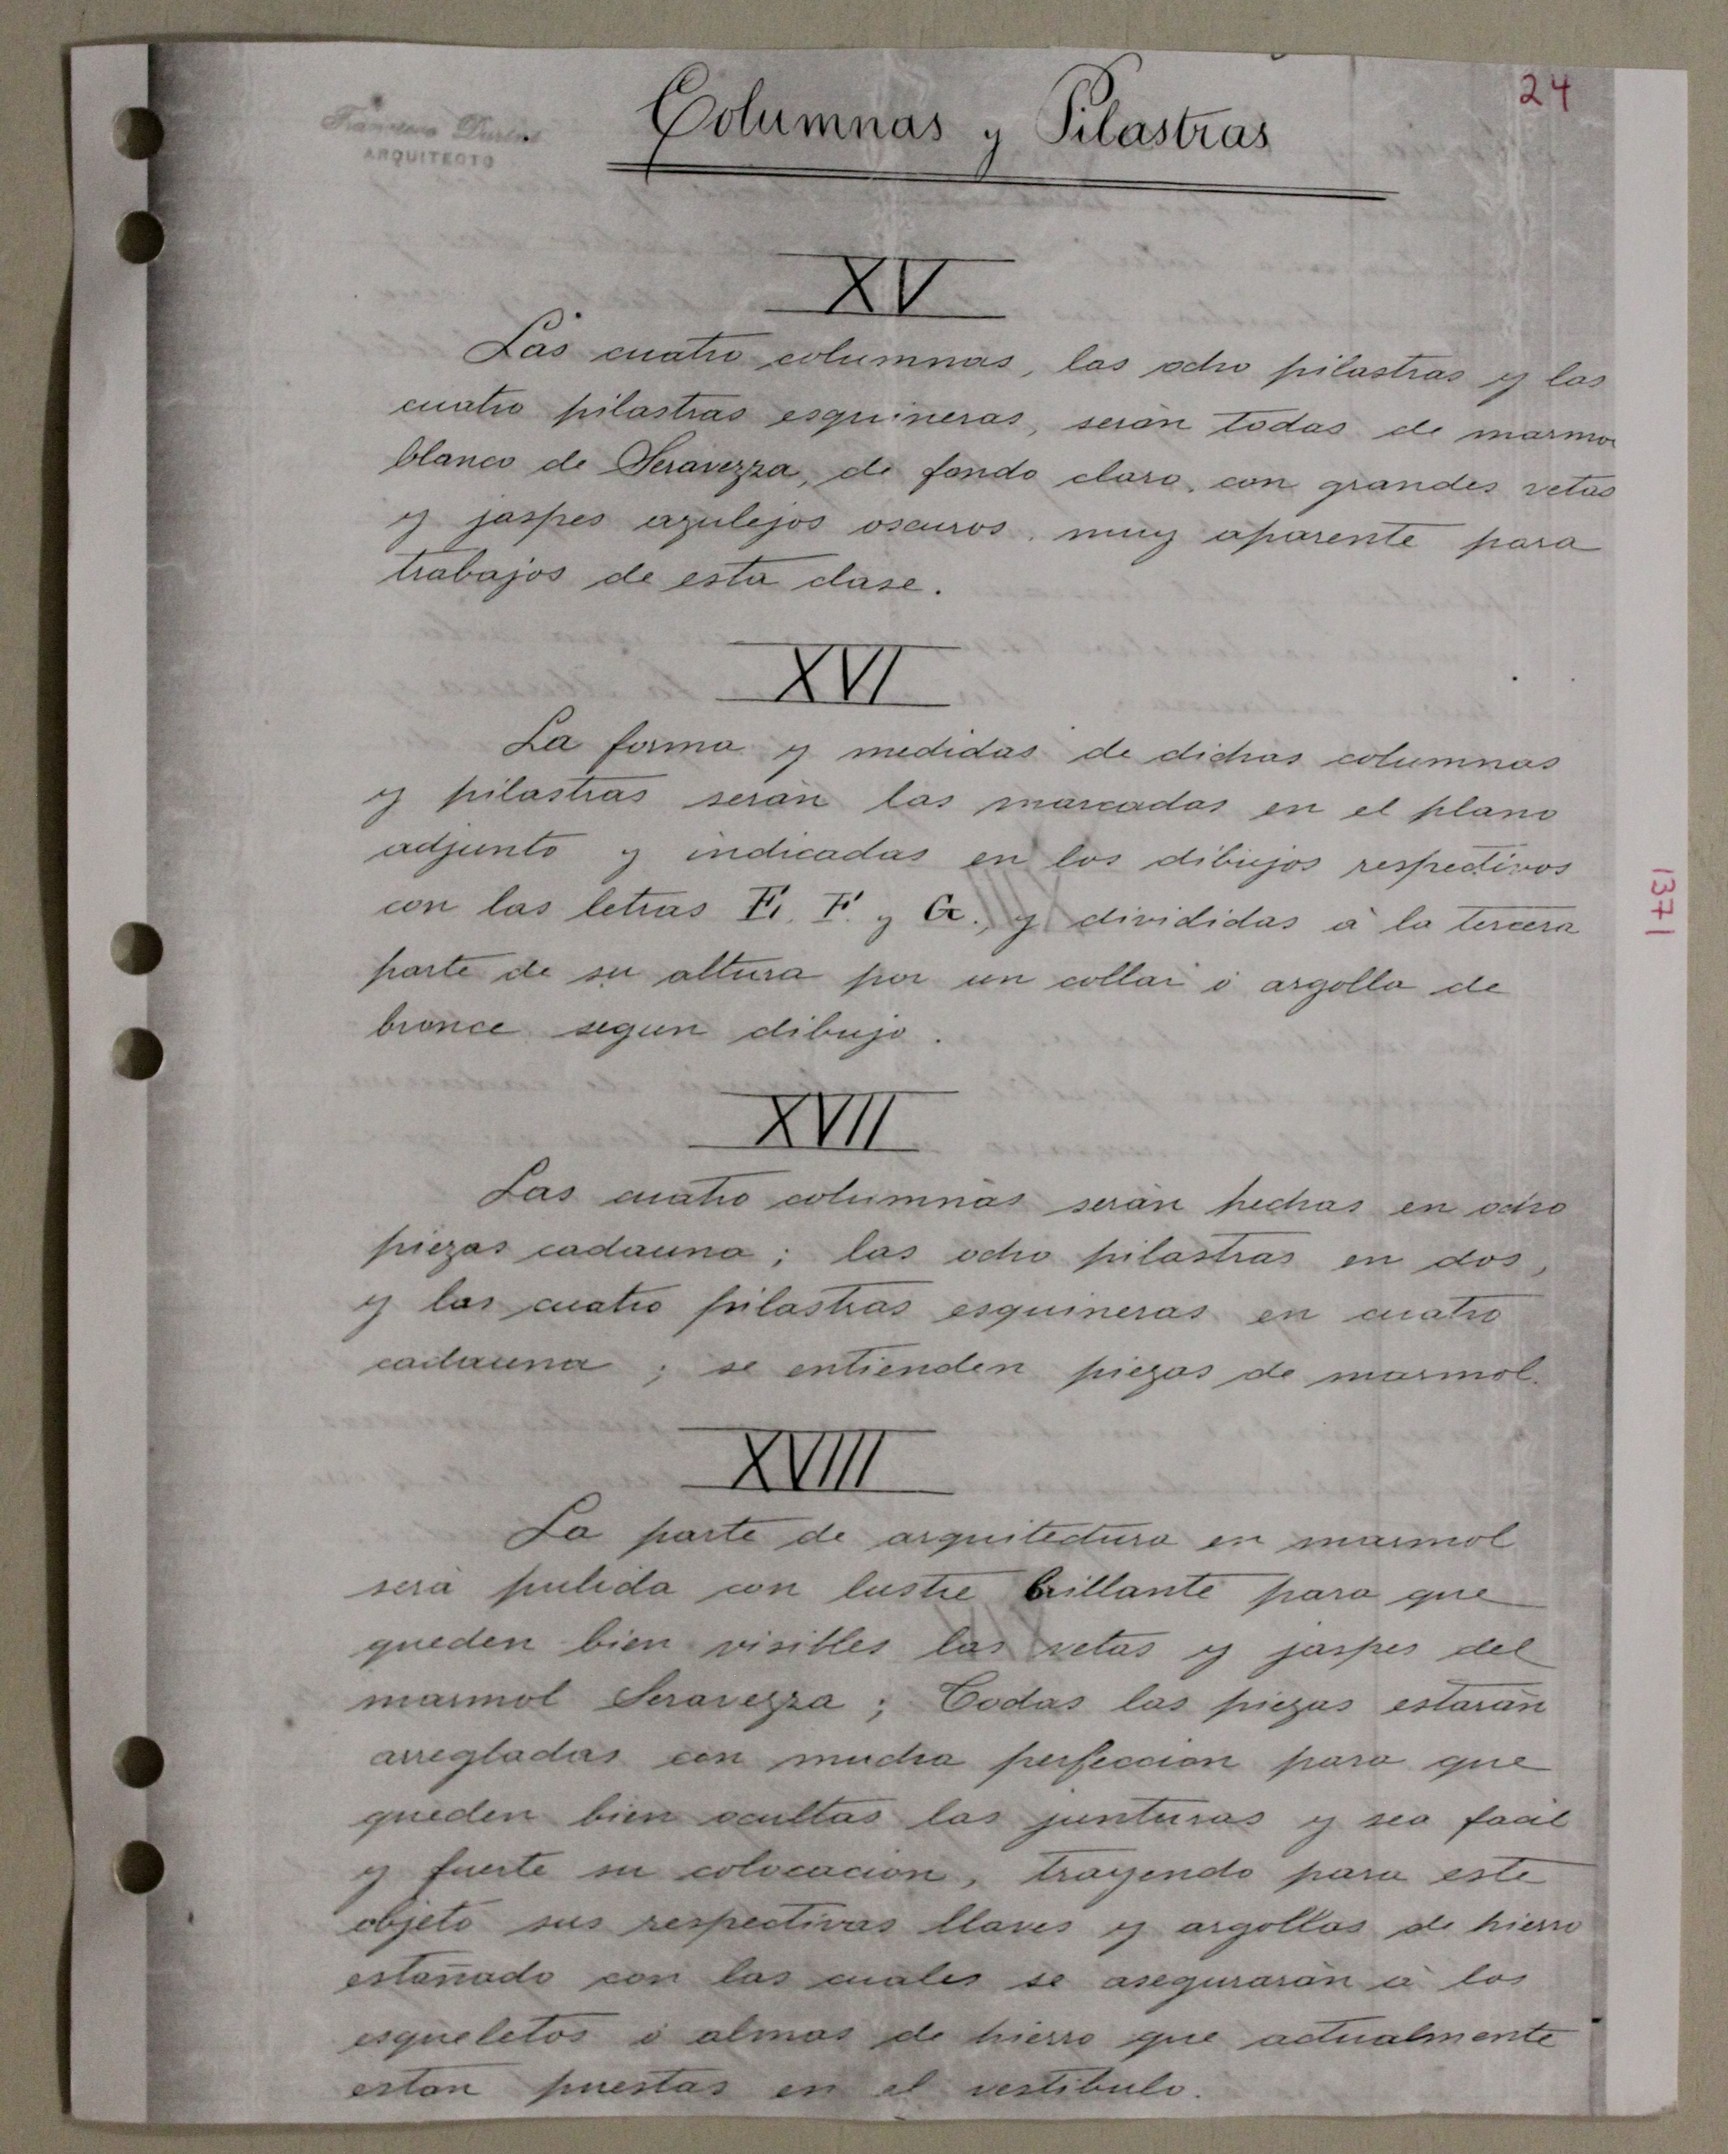 24
Columnas y Pilastras
ARQUITECTO
XV
Las cuatro columnas, las ocho pilastras y las
cuatro pilastras esquineras, serán todas de marmol
blanco de Seravezza, de fondo claro, con grandes vetas
y jaspes azulejos oscuros, muy aparente para
trabajos de esta clase.
XVI
La forma y medidas de dichas columnas
y pilastras serán las marcadas en el plano
adjunto y indicadas en los dibujos respectivos
con las letras E. F. y G., y divididas à la tercera
parte de su altura por un collar ò argolla de
bronce segun dibujo.
1371
XVII
Las cuatro columnas serán hechas en ocho
piezas cadauna; las ocho pilastras en dos,
y las cuatro pilastras esquineras en cuatro
cadauna; se entienden piezas de marmol.
XVIIII
La parte de arquitectura en marmol
serà pulida con lustre brillante para que
queden bien visibles las vetas y jaspes del
marmol Seravezza; Todas las piezas estarán
arregladas con mucha perfeccion para que
queden bien ocultas las junturas y sea facil
y fuerte su colocacion, trayendo para este
objeto sus respectivas llaves y argollas de hierro
estañado con las cuales se asegurarán à los
esqueletos ò almas de hierro que actualmente
estan puestas en el vestibulo.